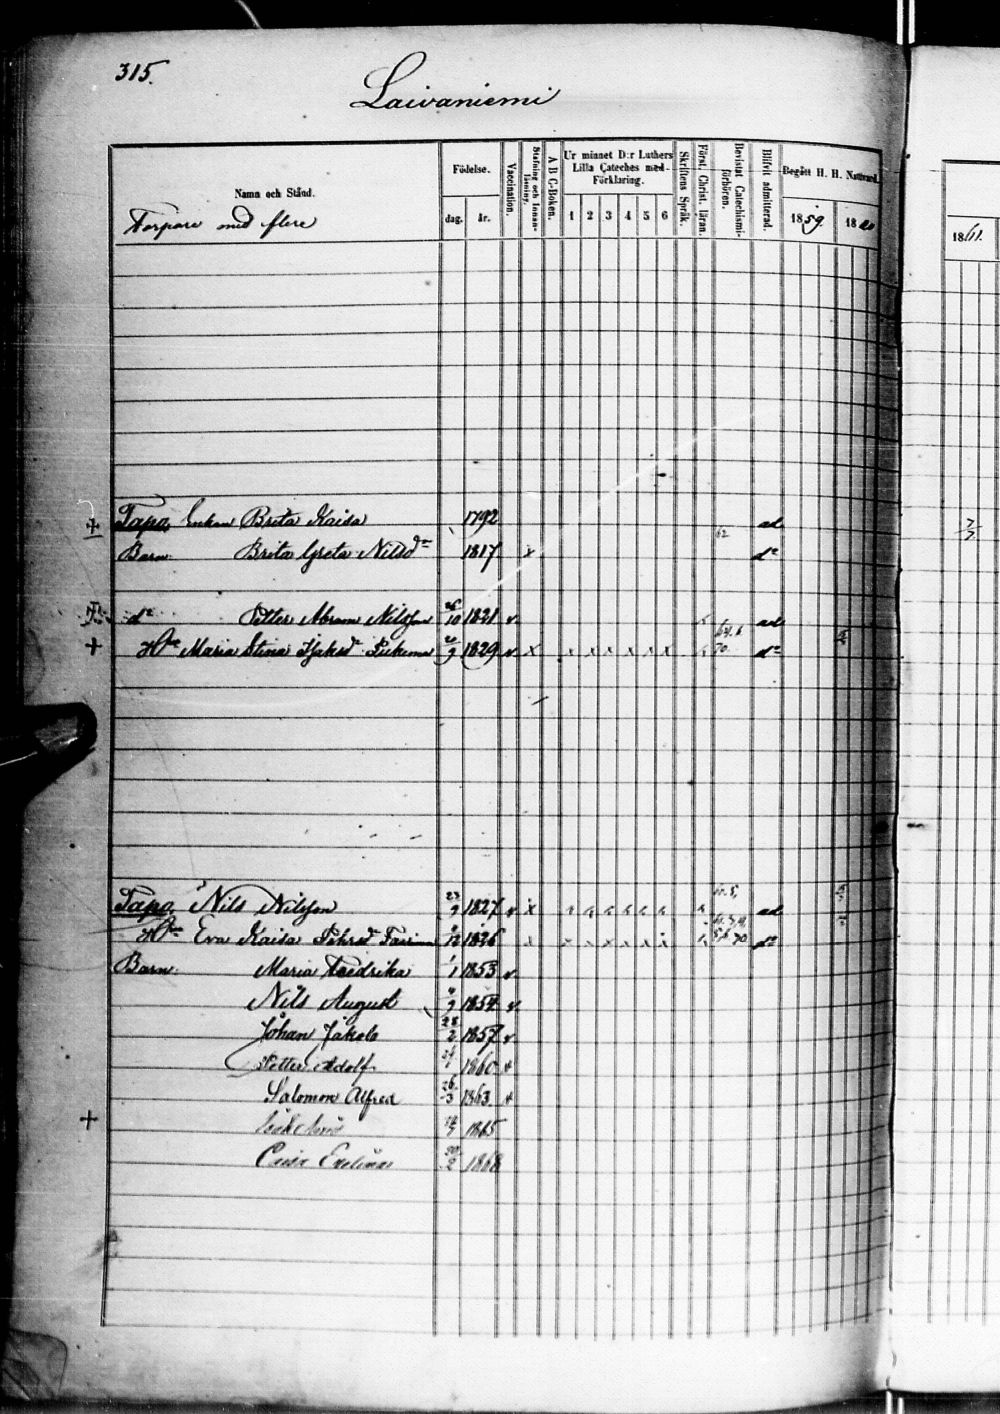 315.
Laivaniemi
Namn och Stånd.
Födelse.
dag. år.
Vaccination.
Stafning och Innan-läsning.
A B C-Boken.
Ur minnet D:r Luthers
Lilla Cateches med
Förklaring.
1 2 3 4 5 6
Skriftens Språk.
Först. Christ. läran.
Bevistat Catechismi-förhören.
Blifvit admitterad.
Begått H. H. Nattvard.
1859. 1860
1861.
Torpare med flere
+ Tapo, Enkan Brita Kaisa 1792 ad 7/7
Barn: Brita Greta Nilsdr 1817 x dº
dº Petter Abram Nilsson 10 1821 v ad
+ Hu Maria Stina 9 1829 v x x x x x x 70 dº
Tapo, Nils Nilsson 23/9 1827 v x ad
Hu Eva Kaisa 12 1826 70 dº
Barn: Maria Fredrika 1/1 1853 v
Nils August 9 1854 v
Johan Jakob 28/2 1857 v
Petter Adolf 1860
Salomon Alfred 26/3 1863
+ 1865
Evelina 20/2 1868